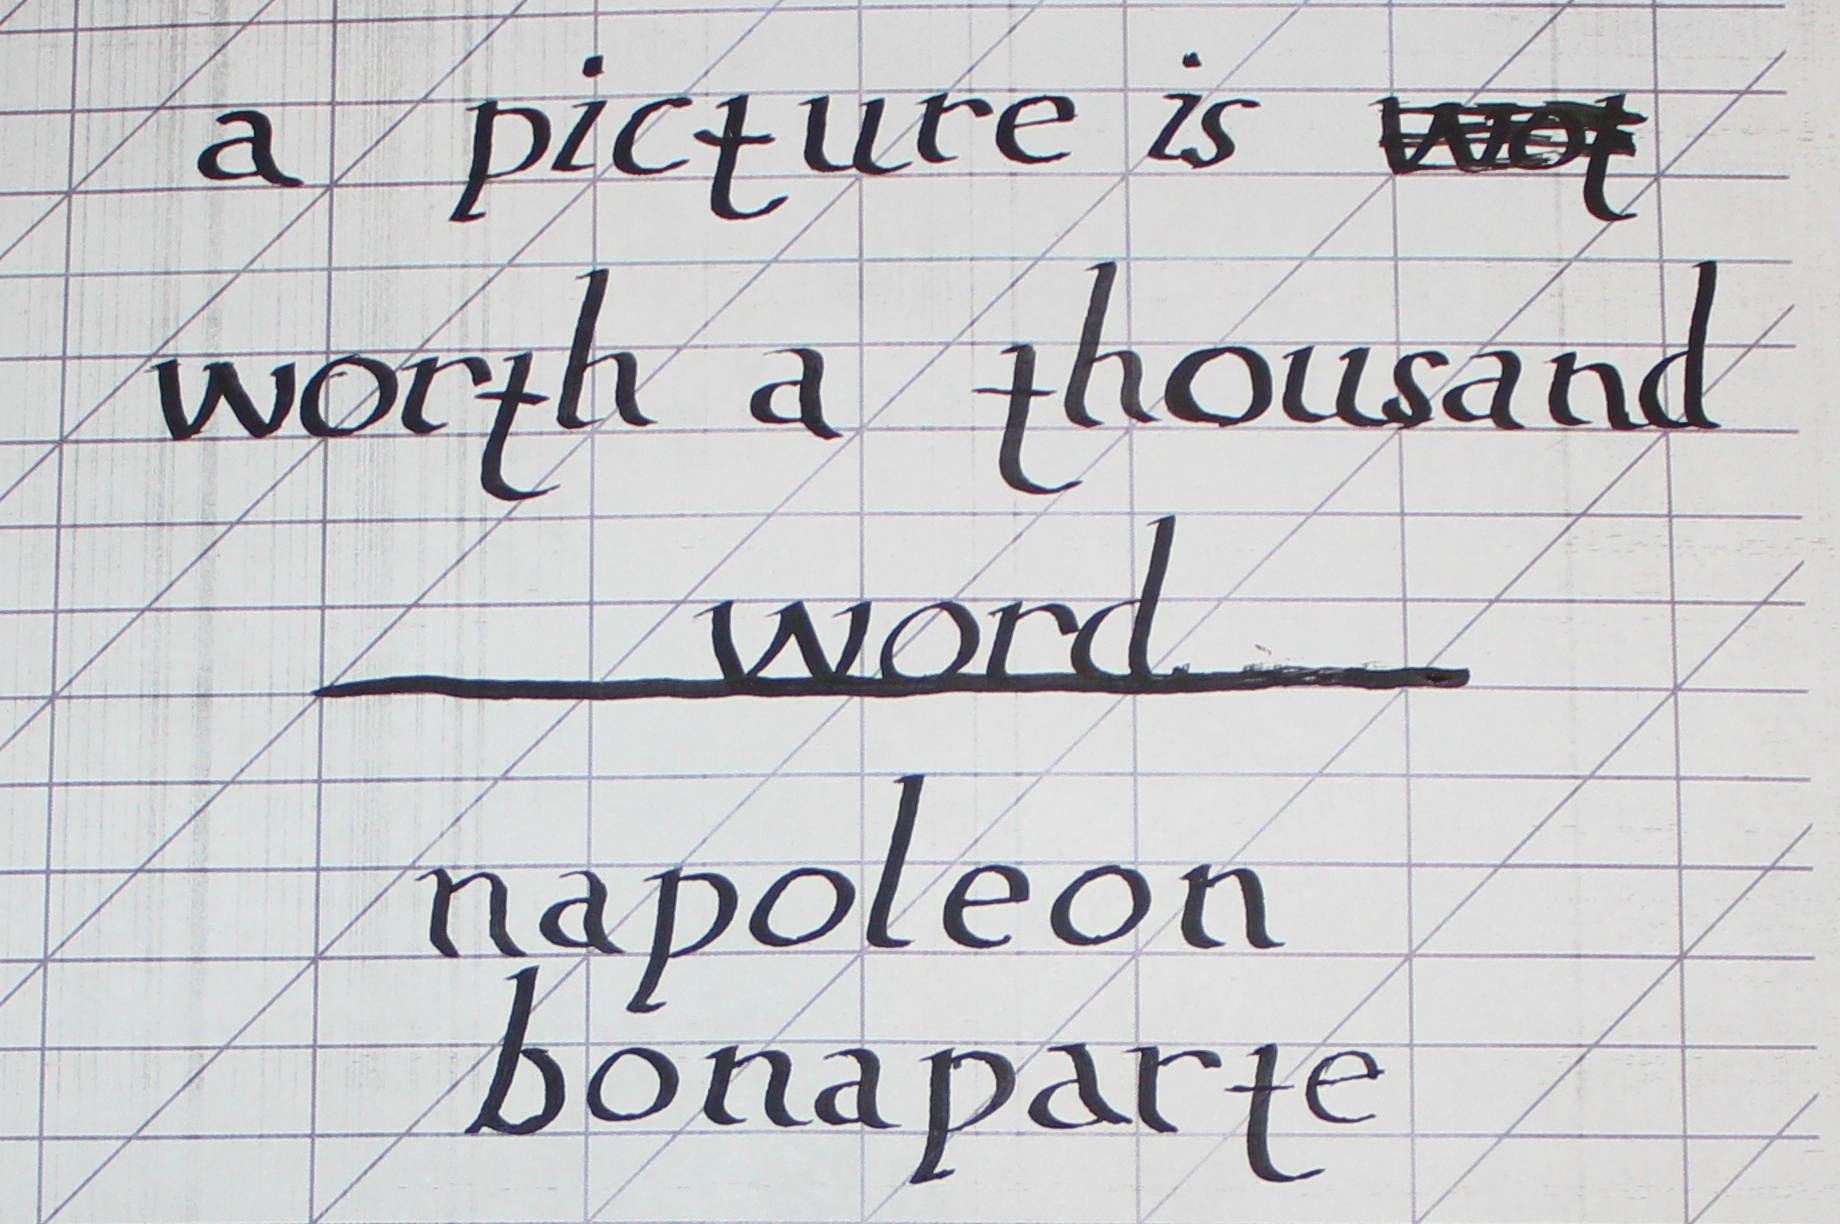 a picture is wot
worth a thousand
word
napoleon
bonaparte